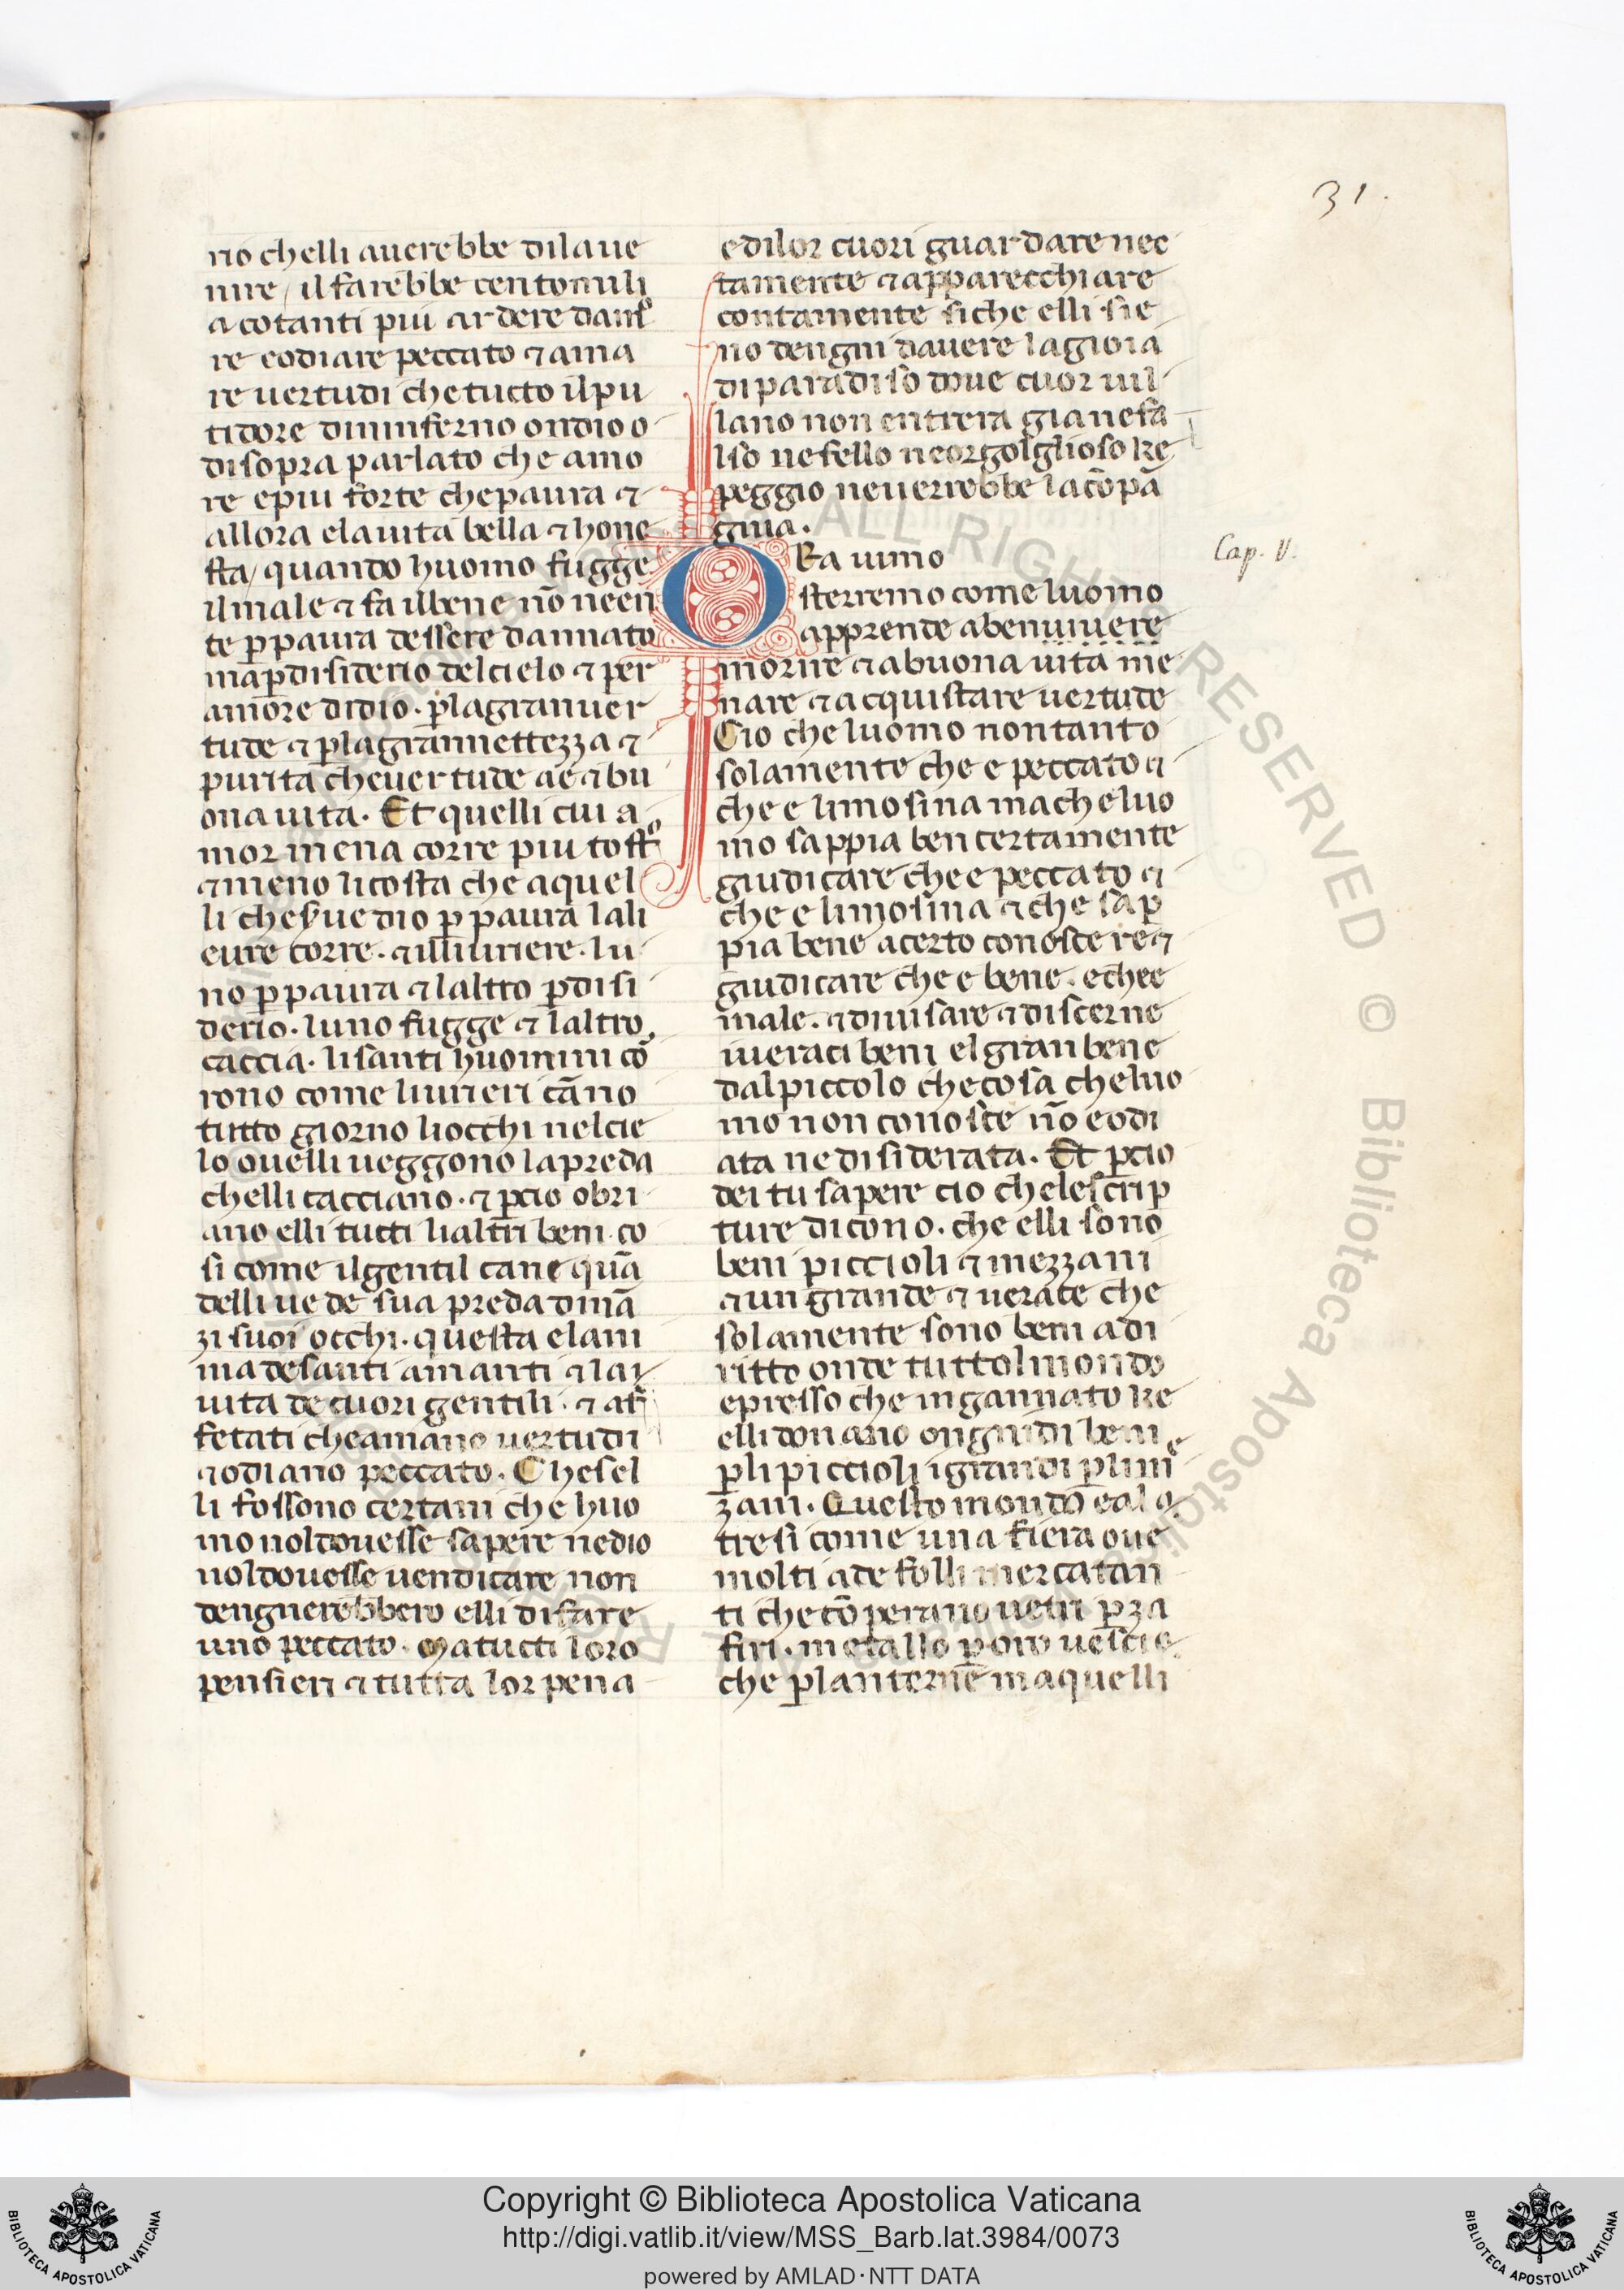 31.
no chelli auerebbe dilaue
nire / il farebbe centomili
a cotanti piu ardere damo
re eodiare peccato ⁊ ama
re uertudi che tucto il pu
tidore dininferno ondio o
disopra parlato che amo
re epiu forte che paura ⁊
allora elauita bella ⁊ hone
sta / quando huomo fugge
il male ⁊ fa il bene nō neen
te ꝑ paura dessere dannato
ma ꝑ disiderio del cielo ⁊ per
amore didio · ꝑ la gran uer
tude ⁊ ꝑ la gran nettezza ⁊
purita che uertude ae ⁊ bu
ona uita · Et quelli cui a
mor mena corre piu tosto
⁊ meno li costa che a quel
li che sue dio ꝑ paura la li
eure corre · ⁊ il liuriere · lu
no ꝑ paura ⁊ laltro ꝑ disi
derio · luno fugge ⁊ laltro
caccia · li santi huomini cō
rono come liurieri cāno
tutto giorno liocchi nel cie
lo ouelli ueggono la preda
chelli cacciano · ⁊ ꝑcio obri
ano elli tucti lialtri beni · co
si come il gentil cane quā
delli uede sua preda dinā
zi suoi occhi · questa elani
ma de santi amanti ⁊ la
uita de cuori gentili · ⁊ af
fetati che amano uertudi
⁊ odiano peccato · Che sel
li fossono certani che huo
mo nol douesse sapere ne dio
nol douesse uendicare non
dengnerebbero elli di fare
uno peccato · Ma tucti loro
pensieri ⁊ tutta lor pena
e di lor cuori guardare nec
tamente ⁊ apparecchiare
contamente siche elli sie
no dengni dauere la gioia
di paradiso doue cuor uil
lano non enterra gia ne fa
lso ne fello ne orgolglioso ke
peggio neuerrebbe la cōpā
gnia ·
ORa uimo
sterremo come luomo
apprende a ben uiuere
Cap. V.
morire ⁊ a buona uita me
nare ⁊ acquistare uertude
Cio che luomo non tanto
solamente che e peccato ⁊
che e limosina ma che luo
mo sappia ben certamente
giudicare che e peccato ⁊
che e limosina ⁊ che sap
pia bene acerto conoscere ⁊
giudicare che e bene · e che e
male · ⁊ diuisare ⁊ discerne
i ueraci beni el gran bene
dal piccolo che cosa che luo
mo non conosce nō e odi
ata ne disiderata · Et ꝑcio
dei tu sapere cio che le scrip
ture dicono · che elli sono
beni piccioli ⁊ mezzani
⁊ un grande ⁊ uerace che
solamente sono beni a di
ritto onde tuttol mondo
epresso che ingannato ke
elli donano ongnidi beni
ꝑ li piccioli i grandi ꝑ li me
zani · Questo mondo e al
tresi come una fiera oue
molti a de folli mercatan
ti che cōperano uetri ꝑ za
firi · metallo ꝑ oro uescie
che ꝑ lanterne ma quelli
ALL RIGHTS RESERVED © Biblioteca Apostolica
Copyright © Biblioteca Apostolica Vaticana
http://digi.vatlib.it/view/MSS_Barb.lat.3984/0073
powered by AMLAD·NTT DATA
BIBLIOTECA APOSTOLICA VATICANA
BIBLIOTECA APOSTOLICA VATICANA